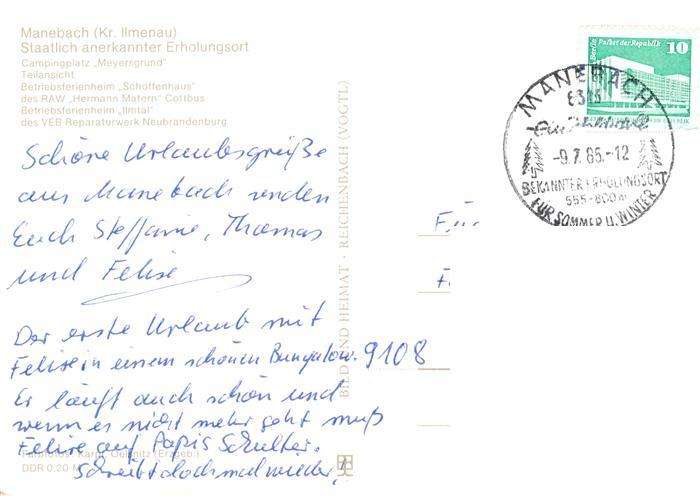 Manebach (Kr. Ilmenau)
Staatlich anerkannter Erholungsort
Campingplatz „Meyersgrund"
Teilansicht
Betriebsferienheim „Schöffenhaus"
des RAW „Hermann Matern" Cottbus
Betriebsferienheim „Ilmtal"
des VEB Reparaturwerk Neubrandenburg
Schöne Urlaubsgrüße
aus Manebach senden
Euch Steffanie, Thomas
und Felise
Der erste Urlaub mit
Felise in einem schönen Bungalow. 9108
Er läuft auch schön und
wenn es nicht mehr geht muß
Felise auf Papis Schulter.
Schreibt doch mal wieder!
DDR 0,20 M
(Erzgeb.)
BILD UND HEIMAT · REICHENBACH (VOGTL)
Palast der Republik
10
MANEBACH
-9.7.85.-12
BEKANNTER ERHOLUNGSORT
555-800m
FÜR SOMMER U. WINTER